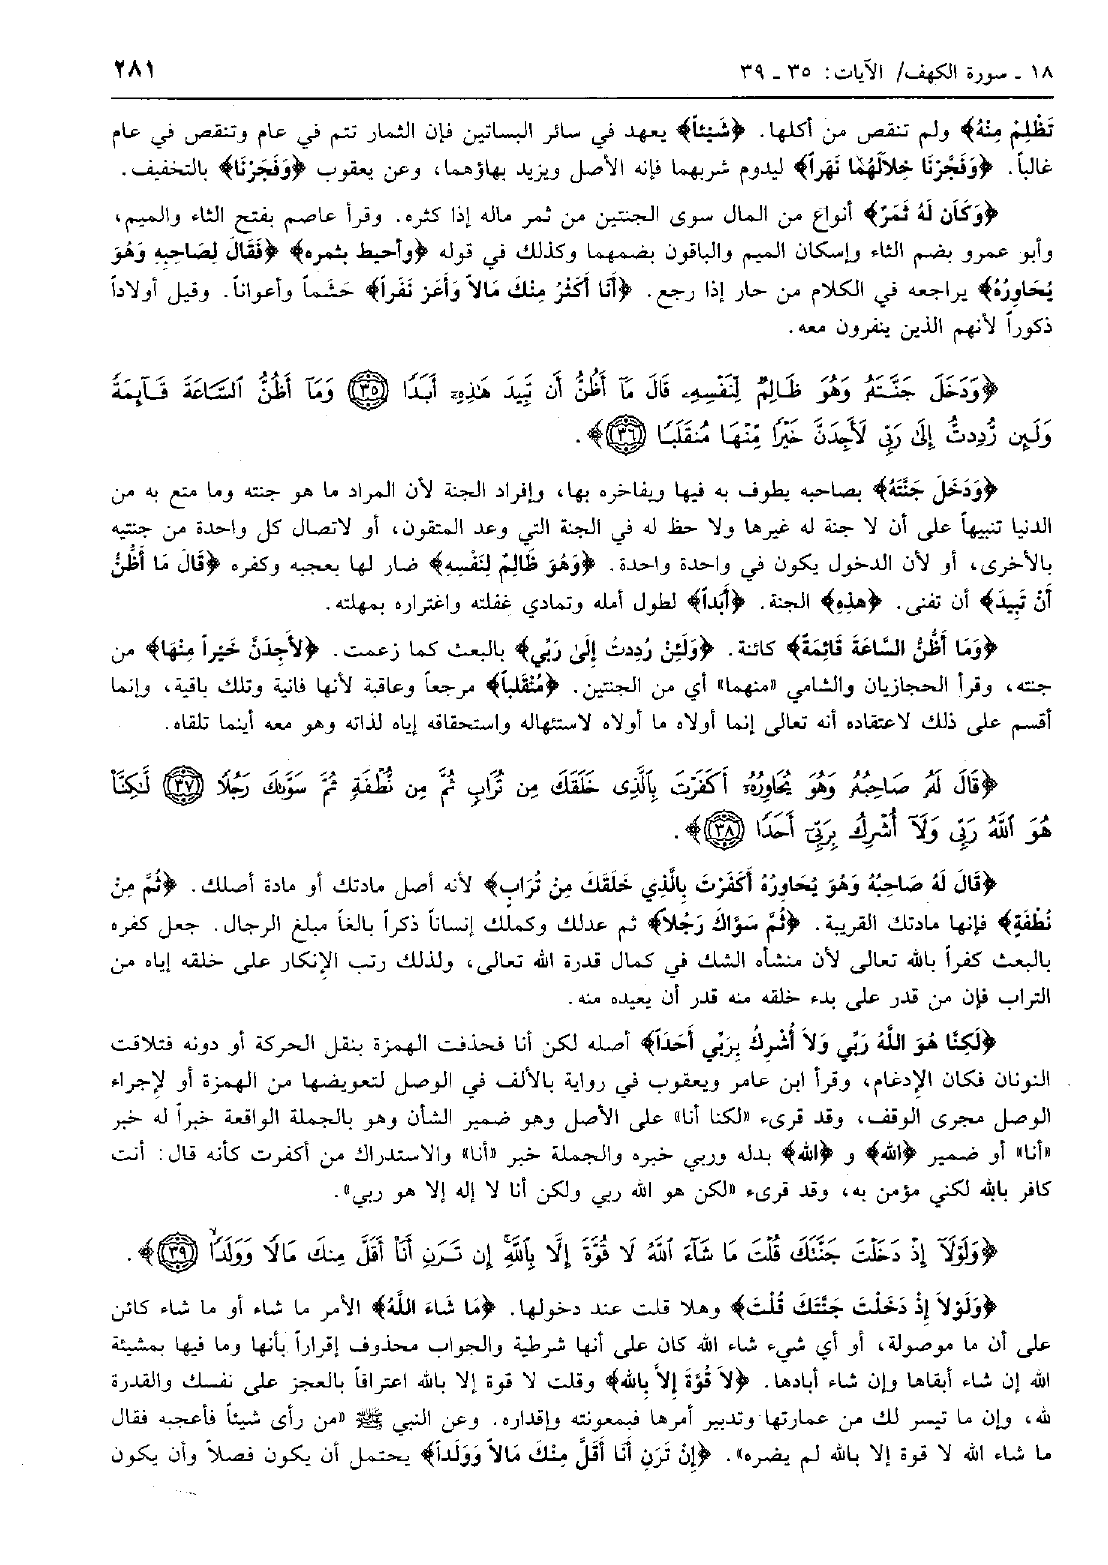 ١٨ ـ سورة الكهف/ الآيات: ٣٥ ـ ٣٩ ٢٨١
تَظْلِمْ مِنْهُ﴾ ولم تنقص من أكلها. ﴿شَيْئاً﴾ يعهد في سائر البساتين فإن الثمار تتم في عام وتنقص في عام
غالباً. ﴿وَفَجَّرْنَا خِلاَلَهُمَا نَهَراً﴾ ليدوم شربهما فإنه الأصل ويزيد بهاؤهما، وعن يعقوب ﴿وَفَجَرْنَا﴾ بالتخفيف.
﴿وَكَانَ لَهُ ثَمَرٌ﴾ أنواع من المال سوى الجنتين من ثمر ماله إذا كثره. وقرأ عاصم بفتح الثاء والميم،
وأبو عمرو بضم الثاء وإسكان الميم والباقون بضمهما وكذلك في قوله ﴿وأحيط بثمره﴾ ﴿فَقَالَ لِصَاحِبِهِ وَهُوَ
يُحَاوِرُهُ﴾ يراجعه في الكلام من حار إذا رجع. ﴿أَنَا أَكْثَرُ مِنْكَ مَالاً وَأَعَز نَفَراً﴾ حَشماً وأعواناً. وقيل أولاداً
ذكوراً لأنهم الذين ينفرون معه.
﴿وَدَخَلَ جَنَّتَهُۥ وَهُوَ ظَالِمٌ لِّنَفْسِهِۦ قَالَ مَآ أَظُنُّ أَن تَبِيدَ هَٰذِهِۦٓ أَبَدًا ﴿٣٥﴾ وَمَآ أَظُنُّ ٱلسَّاعَةَ قَآئِمَةً
وَلَئِن رُّدِدتُّ إِلَىٰ رَبِّى لَأَجِدَنَّ خَيْرًا مِّنْهَا مُنقَلَبًا ﴿٣٦﴾﴾.
﴿وَدَخَلَ جَنَّتَهُ﴾ بصاحبه يطوف به فيها ويفاخره بها، وإفراد الجنة لأن المراد ما هو جنته وما متع به من
الدنيا تنبيهاً على أن لا جنة له غيرها ولا حظ له في الجنة التي وعد المتقون، أو لاتصال كل واحدة من جنتيه
بالأخرى، أو لأن الدخول يكون في واحدة واحدة. ﴿وَهُوَ ظَالِمٌ لِنَفْسِهِ﴾ ضار لها بعجبه وكفره ﴿قَالَ مَا أَظُنُّ
أَنْ تَبِيدَ﴾ أن تفنى. ﴿هذِهِ﴾ الجنة. ﴿أَبَداً﴾ لطول أمله وتمادي غفلته واغتراره بمهلته.
﴿وَمَا أَظُنُّ السَّاعَةَ قَائِمَةً﴾ كائنة. ﴿وَلَئِنْ رُدِدتُ إِلَىٰ رَبِّي﴾ بالبعث كما زعمت. ﴿لأَجِدَنَّ خَيْراً مِنْهَا﴾ من
جنته، وقرأ الحجازيان والشامي «منهما» أي من الجنتين. ﴿مُنْقَلَباً﴾ مرجعاً وعاقبة لأنها فانية وتلك باقية، وإنما
أقسم على ذلك لاعتقاده أنه تعالى إنما أولاه ما أولاه لاستئهاله واستحقاقه إياه لذاته وهو معه أينما تلقاه.
﴿قَالَ لَهُۥ صَاحِبُهُۥ وَهُوَ يُحَاوِرُهُۥٓ أَكَفَرْتَ بِٱلَّذِى خَلَقَكَ مِن تُرَابٍ ثُمَّ مِن نُّطْفَةٍ ثُمَّ سَوَّىٰكَ رَجُلًا ﴿٣٧﴾ لَّٰكِنَّا۠
هُوَ ٱللَّهُ رَبِّى وَلَآ أُشْرِكُ بِرَبِّىٓ أَحَدًا ﴿٣٨﴾﴾.
﴿قَالَ لَهُ صَاحِبُهُ وَهُوَ يُحَاوِرُهُ أَكَفَرْتَ بِالَّذِي خَلَقَكَ مِنْ تُرَابٍ﴾ لأنه أصل مادتك أو مادة أصلك. ﴿ثُمَّ مِنْ
نُطْفَةٍ﴾ فإنها مادتك القريبة. ﴿ثُمَّ سَوَّاكَ رَجُلاً﴾ ثم عدلك وكملك إنساناً ذكراً بالغاً مبلغ الرجال. جعل كفره
بالبعث كفراً بالله تعالى لأن منشأه الشك في كمال قدرة الله تعالى، ولذلك رتب الإنكار على خلقه إياه من
التراب فإن من قدر على بدء خلقه منه قدر أن يعيده منه.
﴿لَكِنَّا هُوَ اللَّهُ رَبِّي وَلاَ أُشْرِكُ بِرَبِّي أَحَداً﴾ أصله لكن أنا فحذفت الهمزة بنقل الحركة أو دونه فتلاقت
النونان فكان الإدغام، وقرأ ابن عامر ويعقوب في رواية بالألف في الوصل لتعويضها من الهمزة أو لإجراء
الوصل مجرى الوقف، وقد قرىء «لكنا أنا» على الأصل وهو ضمير الشأن وهو بالجملة الواقعة خبراً له خبر
«أنا» أو ضمير ﴿الله﴾ و ﴿الله﴾ بدله وربي خبره والجملة خبر «أنا» والاستدراك من أكفرت كأنه قال: أنت
كافر بالله لكني مؤمن به، وقد قرىء «لكن هو الله ربي ولكن أنا لا إله إلا هو ربي».
﴿وَلَوْلَآ إِذْ دَخَلْتَ جَنَّتَكَ قُلْتَ مَا شَآءَ ٱللَّهُ لَا قُوَّةَ إِلَّا بِٱللَّهِ إِن تَرَنِ أَنَا۠ أَقَلَّ مِنكَ مَالًا وَوَلَدًا ﴿٣٩﴾﴾.
﴿وَلَوْلاَ إِذْ دَخَلْتَ جَنَّتَكَ قُلْتَ﴾ وهلا قلت عند دخولها. ﴿مَا شَاءَ اللَّهُ﴾ الأمر ما شاء أو ما شاء كائن
على أن ما موصولة، أو أي شيء شاء الله كان على أنها شرطية والجواب محذوف إقراراً بأنها وما فيها بمشيئة
الله إن شاء أبقاها وإن شاء أبادها. ﴿لاَ قُوَّةَ إِلاَّ بِالله﴾ وقلت لا قوة إلا بالله اعترافاً بالعجز على نفسك والقدرة
لله، وإن ما تيسر لك من عمارتها وتدبير أمرها فبمعونته وإقداره. وعن النبي ﷺ «من رأى شيئاً فأعجبه فقال
ما شاء الله لا قوة إلا بالله لم يضره». ﴿إِنْ تَرَنِ أَنَا أَقَلَّ مِنْكَ مَالاً وَوَلَداً﴾ يحتمل أن يكون فصلاً وأن يكون